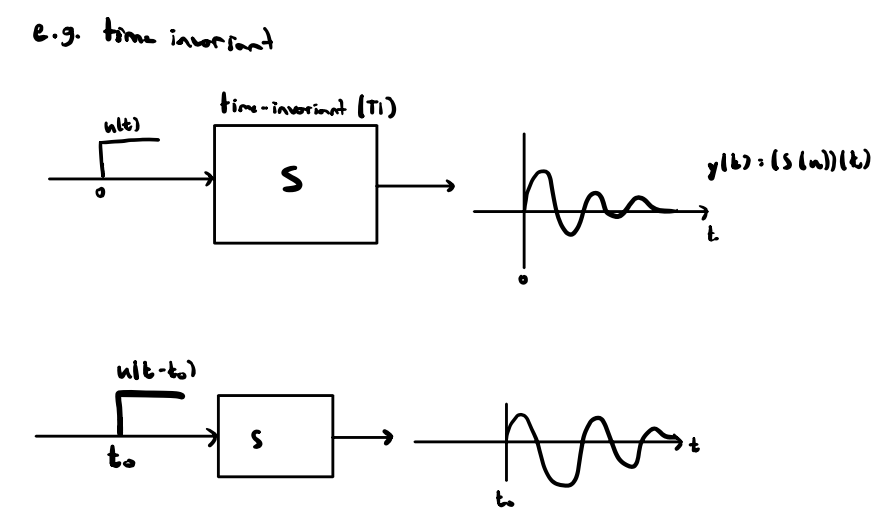 e.g. time invariant
time-invariant (TI)
u(t)
0
S
y(t) = (S(u))(t)
t
0
u(t-t₀)
t₀
S
t
t₀